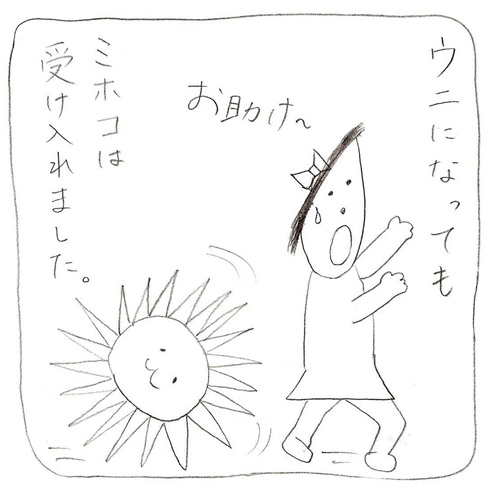 ウニになっても
お助け〜
ミホコは
受け入れました。